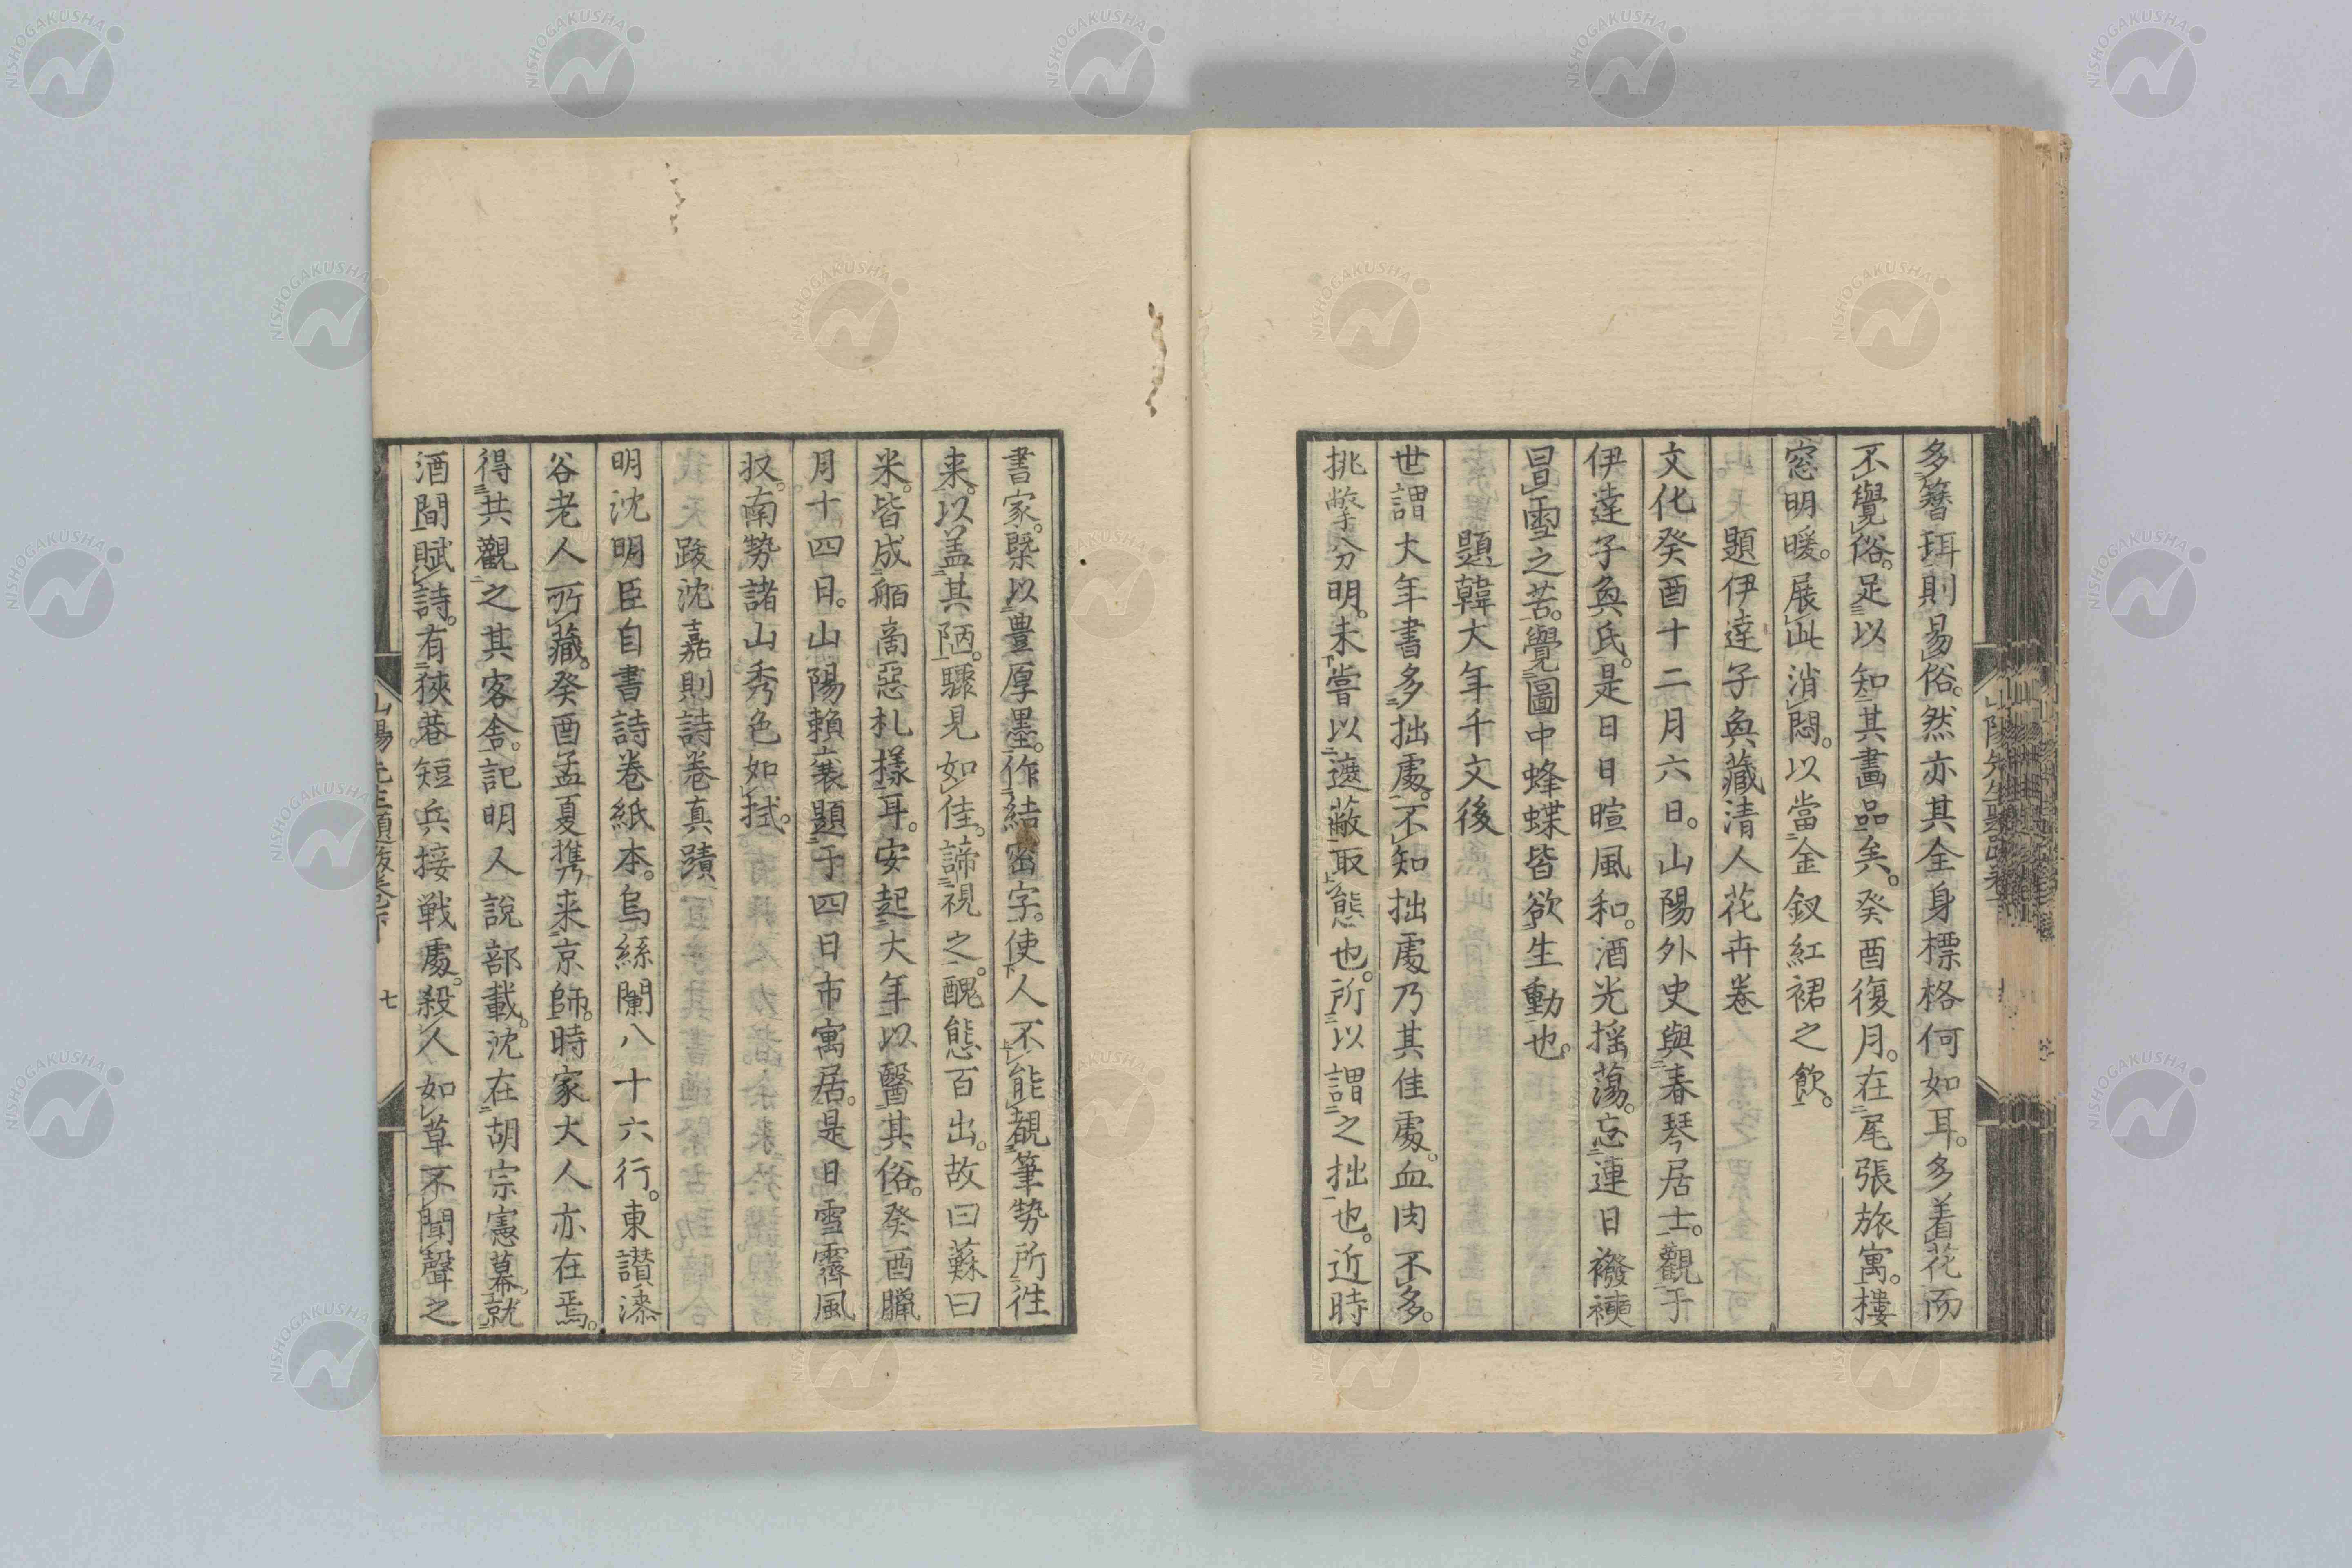 多簪珥則易俗。然亦其全身標格何如耳。多着花而
不覺俗。足以知其畫品矣。癸酉復月。在尾張旅寓。樓
窓明暖。展此消悶。以當金釵紅裙之飲。
題伊達子奐藏清人花卉卷
文化癸酉十二月六日。山陽外史與春琴居士。觀于
伊達子奐氏。是日日暄風和。酒光揺蕩。忘連日襏襫
冒雪之苦。覺圖中蜂蝶皆欲生動也。
題韓大年千文後
世謂大年書多拙處。不知拙處乃其佳處。血肉不多。
挑撆分明。未嘗以遮蔽取態也。所以謂之拙也。近時
書家。槩以豊厚墨。作結密字。使人不能覩筆勢所往
来。以盖其陋。驟見如佳。諦視之。醜態百出。故曰蘇曰
米。皆成舶啇惡札樣耳。安起大年以醫其俗。癸酉臘
月十四日。山陽頼襄題于四日市寓居。是日雪霽風
収。南勢諸山秀色如拭。
跋沈嘉則詩卷真蹟
明沈明臣自書詩卷紙本。烏絲闌八十六行。東讃漆
谷老人所藏。癸酉孟夏携来京師。時家大人亦在焉。
得共觀之其客舍。記明人說部載。沈在胡宗憲幕。就
酒間賦詩。有狹巷短兵接戦處。殺人如草不聞聲之
山陽先生題跋卷下 七